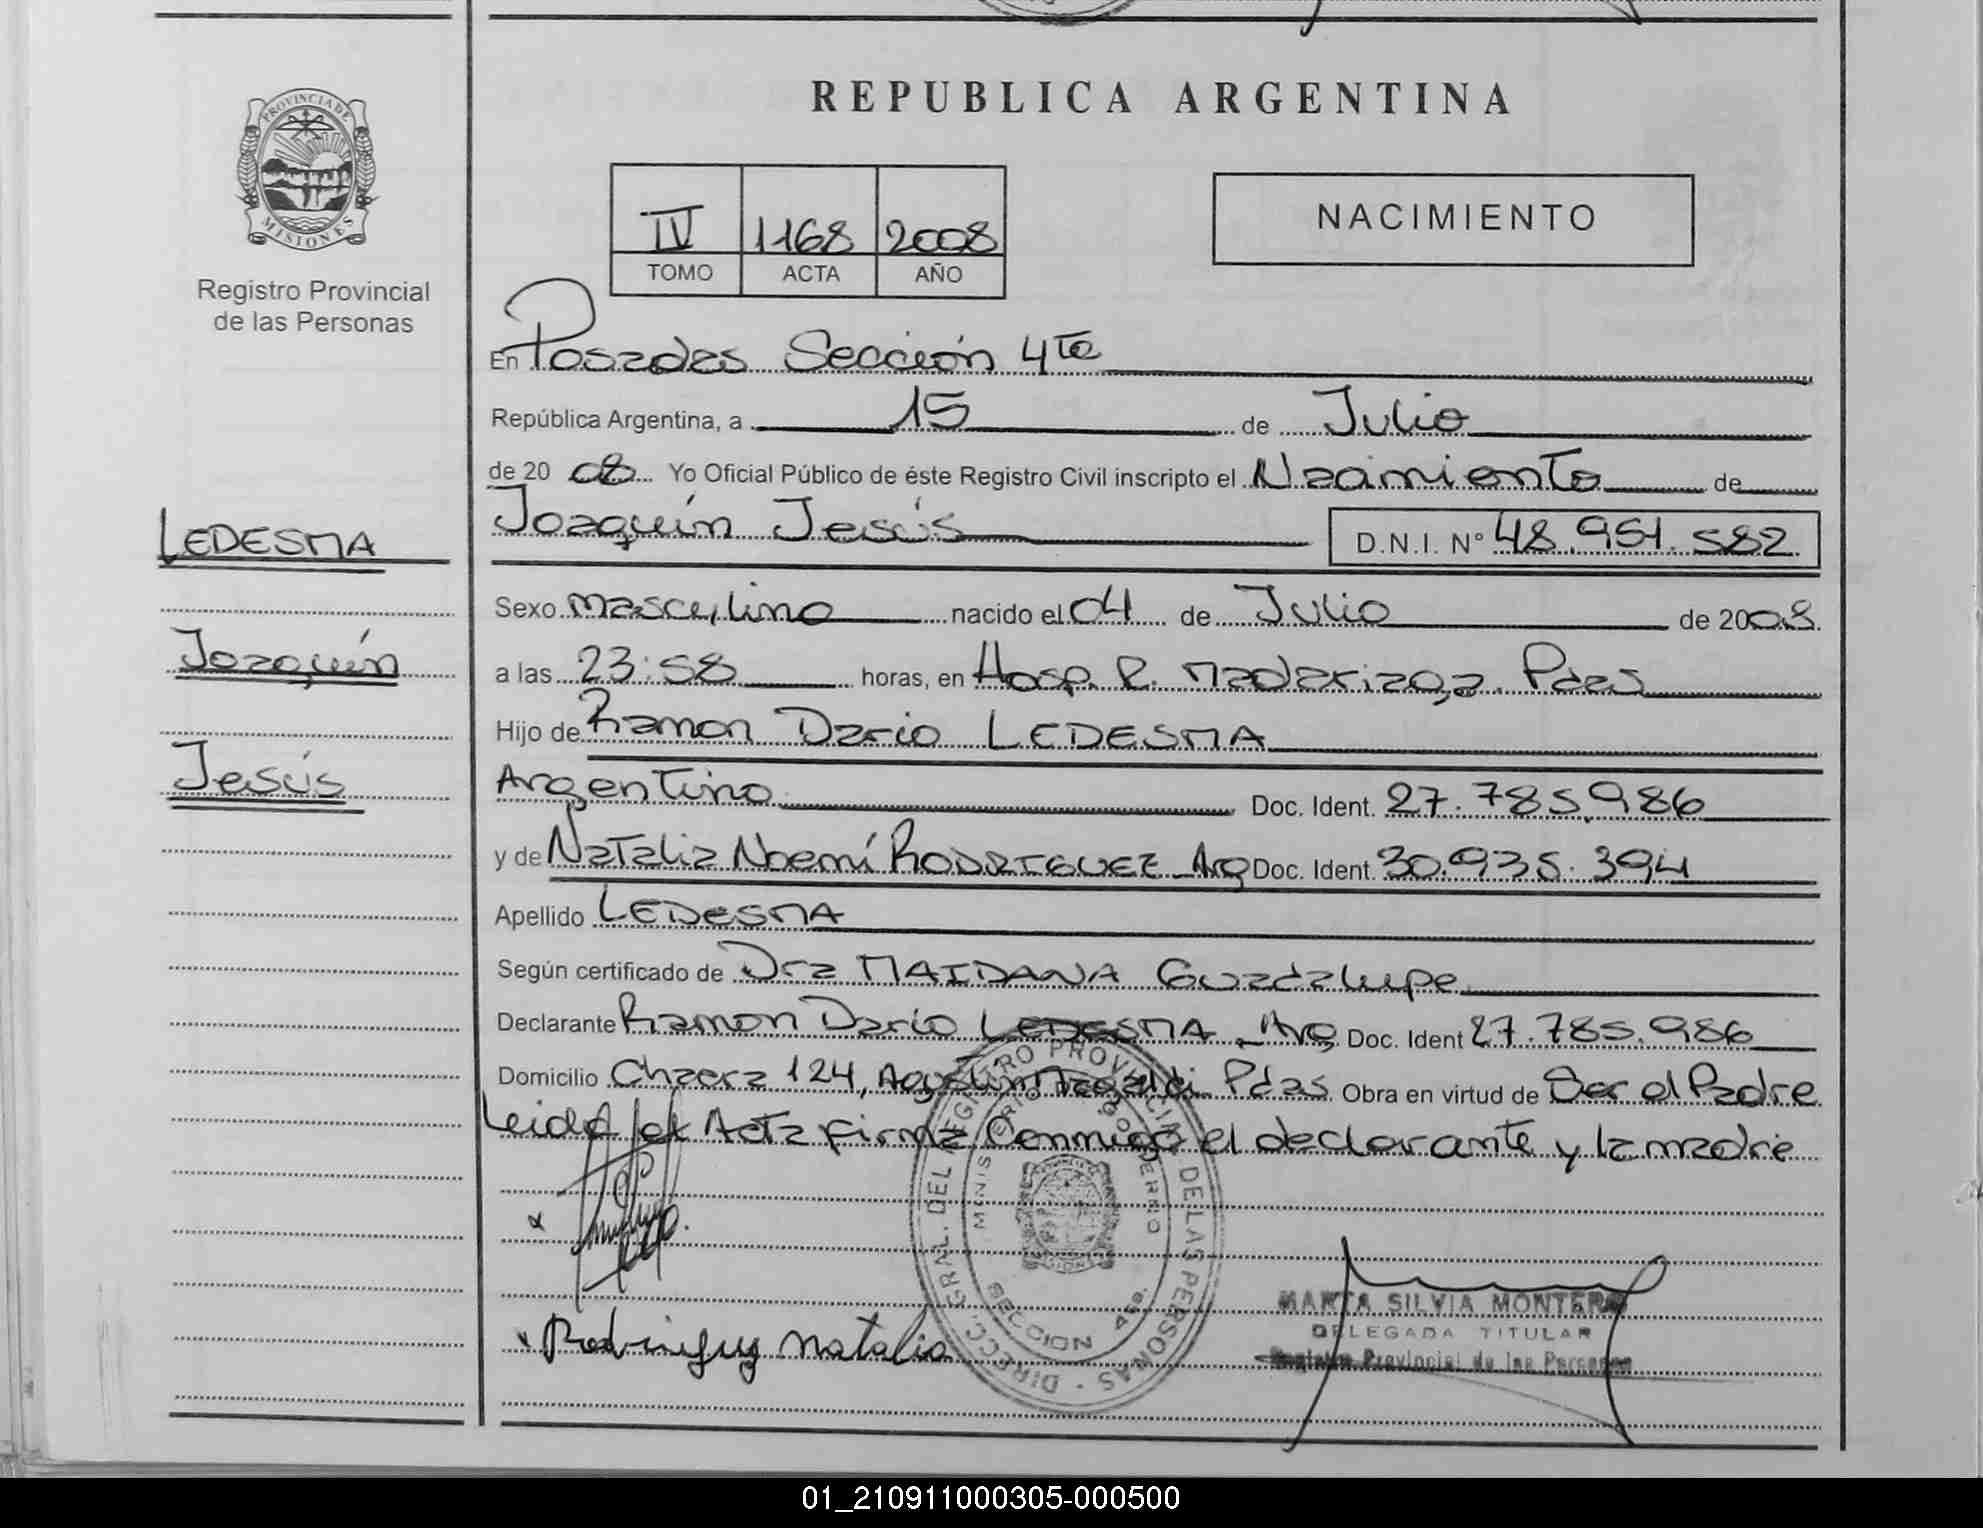 REPUBLICA ARGENTINA
PROVINCIA DE
MISIONES
Registro Provincial
de las Personas
IV 1168 2008
TOMO ACTA AÑO
NACIMIENTO
En Posadas Sección 4ta
República Argentina, a 15 de Julio
de 20 08 Yo Oficial Público de éste Registro Civil inscripto el Nacimiento de
Joaquín Jesús D.N.I. Nº 48.951.582
LEDESMA
Joaquín
Jesús
Sexo masculino nacido el 04 de Julio de 2008
a las 23:58 horas, en Hosp. R. Madariaga. Pdas
Hijo de Ramon Dario LEDESMA
Argentino Doc. Ident. 27.785.986
y de Natalia Noemí RODRIGUEZ Arg Doc. Ident. 30.935.394
Apellido LEDESMA
Según certificado de Dra MAIDANA Guadalupe
Declarante Ramon Dario LEDESMA Arg Doc. Ident 27.785.986
Domicilio Chacra 124, Agustin Magaldi Pdas Obra en virtud de Ser el Padre
Leida el Acta firma Conmigo el declarante y la madre
DIRECC. GRAL. DEL REGISTRO PROVINCIAL DE LAS PERSONAS
MINISTERIO GOBIERNO
SECCION 4ta.
x Rodriguez Natalia
MARTA SILVIA MONTERO
DELEGADA TITULAR
Registro Provincial de las Personas
01_210911000305-000500